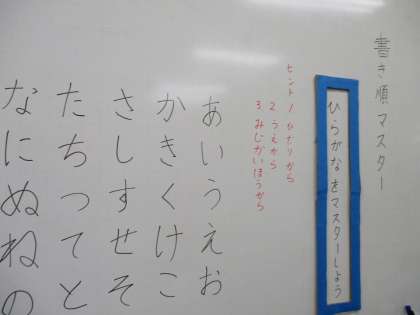 書き順マスター
ひらがなをマスターしよう
ヒント 1 ひだりから
2. うえから
3. みじかいほうから
あいうえお
かきくけこ
さしすせそ
たちつてと
なにぬねの